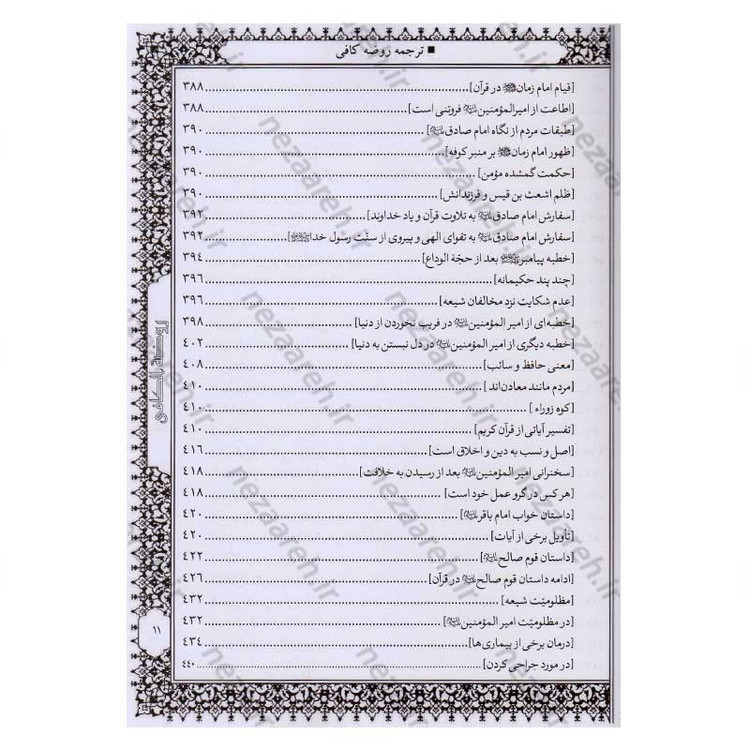 ■ ترجمه روضه کافی
[قیام امام زمان ﷺ در قرآن] ۳۸۸
[اطاعت از امیرالمؤمنین فروتنی است] ۳۸۸
[طبقات مردم از نگاه امام صادق] ۳۹۰
[ظهور امام زمان بر منبر کوفه] ۳۹۰
[حکمت گمشده مؤمن] ۳۹۰
[ظلم اشعث بن قیس و فرزندانش] ۳۹۰
[سفارش امام صادق به تلاوت قرآن و یاد خداوند] ۳۹۲
[سفارش امام صادق به تقوای الهی و پیروی از سنّت رسول خدا] ۳۹۲
[خطبه پیامبر بعد از حجّة الوداع] ۳۹۴
[چند پند حکیمانه] ۳۹۶
[عدم شکایت نزد مخالفان شیعه] ۳۹۶
[خطبه‌ای از امیر المؤمنین در فریب نخوردن از دنیا] ۳۹۸
[خطبه دیگری از امیر المؤمنین در دل نبستن به دنیا] ۴۰۲
[معنی حافظ و سائب] ۴۰۸
[مردم مانند معادن‌اند] ۴۱۰
[کوه زوراء] ۴۱۰
[تفسیر آیاتی از قرآن کریم] ۴۱۰
[اصل و نسب به دین و اخلاق است] ۴۱۶
[سخنرانی امیر المؤمنین بعد از رسیدن به خلافت] ۴۱۸
[هر کس در گرو عمل خود است] ۴۱۸
[داستان خواب امام باقر] ۴۲۰
[تأویل برخی از آیات] ۴۲۰
[داستان قوم صالح] ۴۲۲
[ادامه داستان قوم صالح در قرآن] ۴۲۶
[مظلومیّت شیعه] ۴۳۲
[در مظلومیّت امیر المؤمنین] ۴۳۲
[درمان برخی از بیماری‌ها] ۴۳۴
[در مورد جراحی کردن] ۴۴۰
روضة الکافی
۱۱
nezaareh.ir